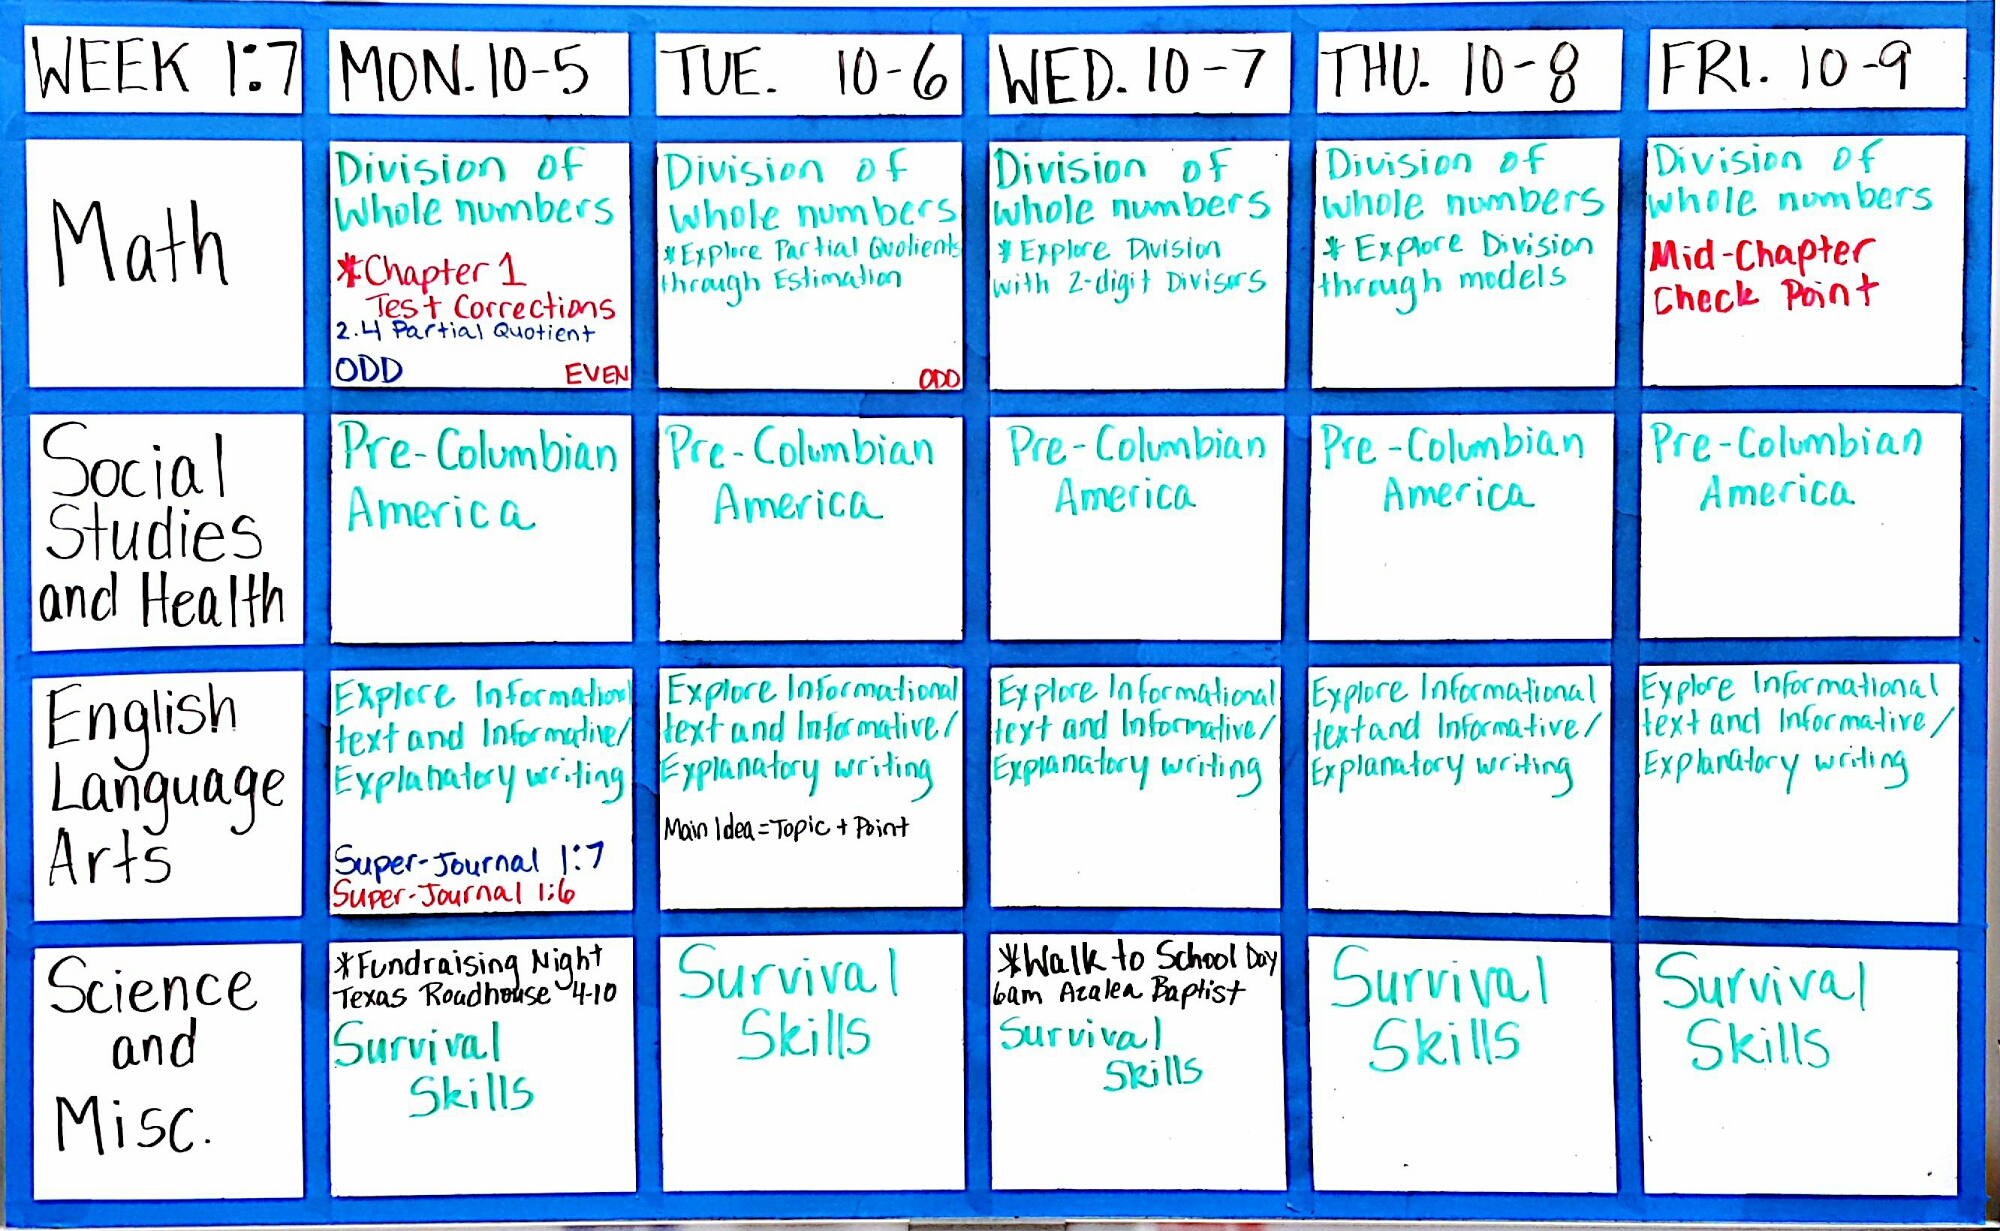 WEEK 1:7
MON. 10-5
TUE. 10-6
WED. 10-7
THU. 10-8
FRI. 10-9
Math
Division of
Whole numbers
*Chapter 1
Test Corrections
2.4 Partial Quotient
ODD EVEN
Division of
Whole numbers
*Explore Partial Quotients
through Estimation
ODD
Division of
whole numbers
*Explore Division
with 2-digit Divisors
Division of
whole numbers
*Explore Division
through models
Division of
whole numbers
Mid-Chapter
Check Point
Social
Studies
and Health
Pre-Columbian
America
Pre-Columbian
America
Pre-Columbian
America
Pre-Columbian
America
Pre-Columbian
America
English
Language
Arts
Explore Informational
text and Informative/
Explanatory writing
Super-Journal 1:7
Super-Journal 1:6
Explore Informational
text and Informative/
Explanatory writing
Main Idea = Topic + Point
Explore Informational
text and Informative/
Explanatory writing
Explore Informational
text and Informative/
Explanatory writing
Explore Informational
text and Informative/
Explanatory writing
Science
and
Misc.
*Fundraising Night
Texas Roadhouse 4-10
Survival
Skills
Survival
Skills
*Walk to School Day
6am Azalea Baptist
Survival
Skills
Survival
Skills
Survival
Skills